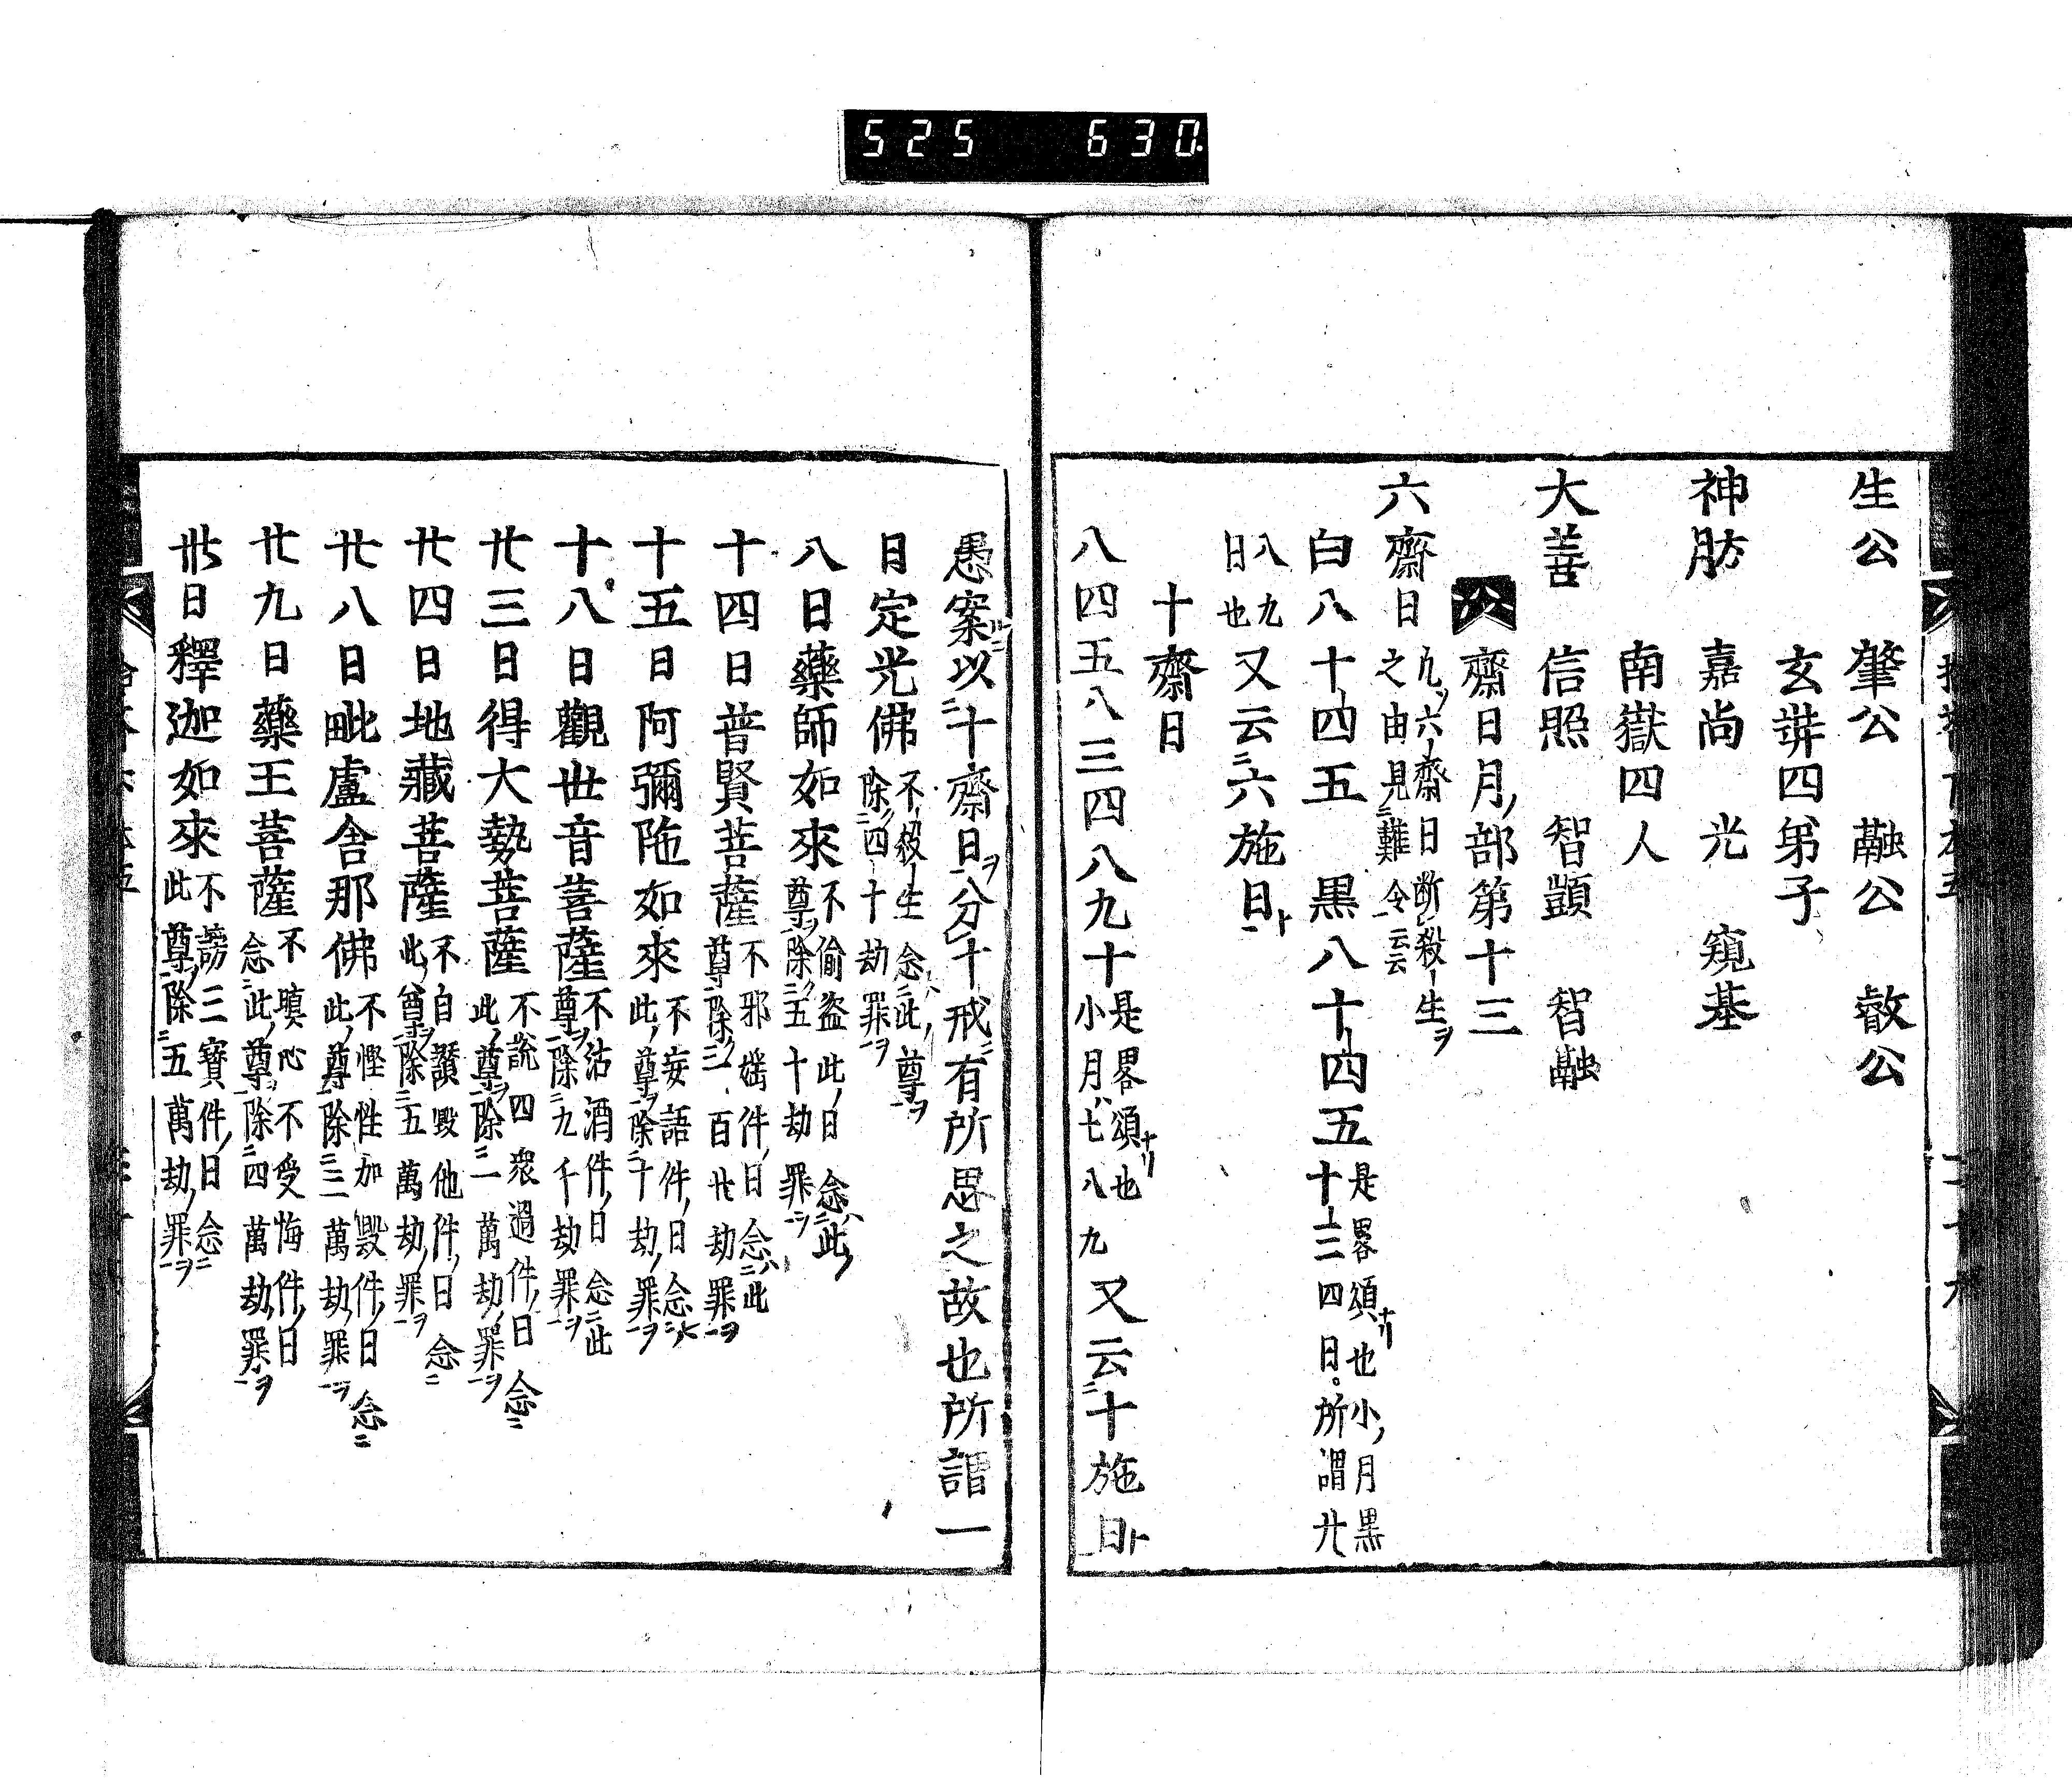 525 630
生公 肇公 融公 叡公
玄弉四弟子
神肪 嘉尚 光 窺基
南嶽四人
大善 信照 智顗 智融
齋日月部第十三
六齋日 九六齋日断殺生ヲ之由見難令云云
白八十四五 黒八十四五 是畧頌也小月黒十三四日所謂廿
八九日也 又云六施日
十齋日
八四五八三四八九十 是畧頌也小月ハ七八九 又云十施日
愚案以十齋日ヲ分十戒有所思之故也所謂一
日定光佛 不殺生念此尊ヲ除四十劫罪ヲ
八日藥師如來 不偷盗此日念此尊除五十劫罪
十四日普賢菩薩 不邪婬件日念此尊除三百廿劫罪ヲ
十五日阿彌陁如來 不妄語件日念此尊除十劫罪ヲ
十八日觀世音菩薩 不沽酒件日念此尊除九千劫罪ヲ
廿三日得大勢菩薩 不説四衆過件日念此尊除一萬劫罪ヲ
廿四日地藏菩薩 不自讃毀他件日念此尊除五萬劫罪ヲ
廿八日毗盧舍那佛 不慳性加毀件日念此尊除三萬劫罪ヲ
廿九日藥王菩薩 不瞋心不受悔件日念此尊除四萬劫罪ヲ
卅日釋迦如來 不謗三寶件日念此尊除五萬劫罪ヲ